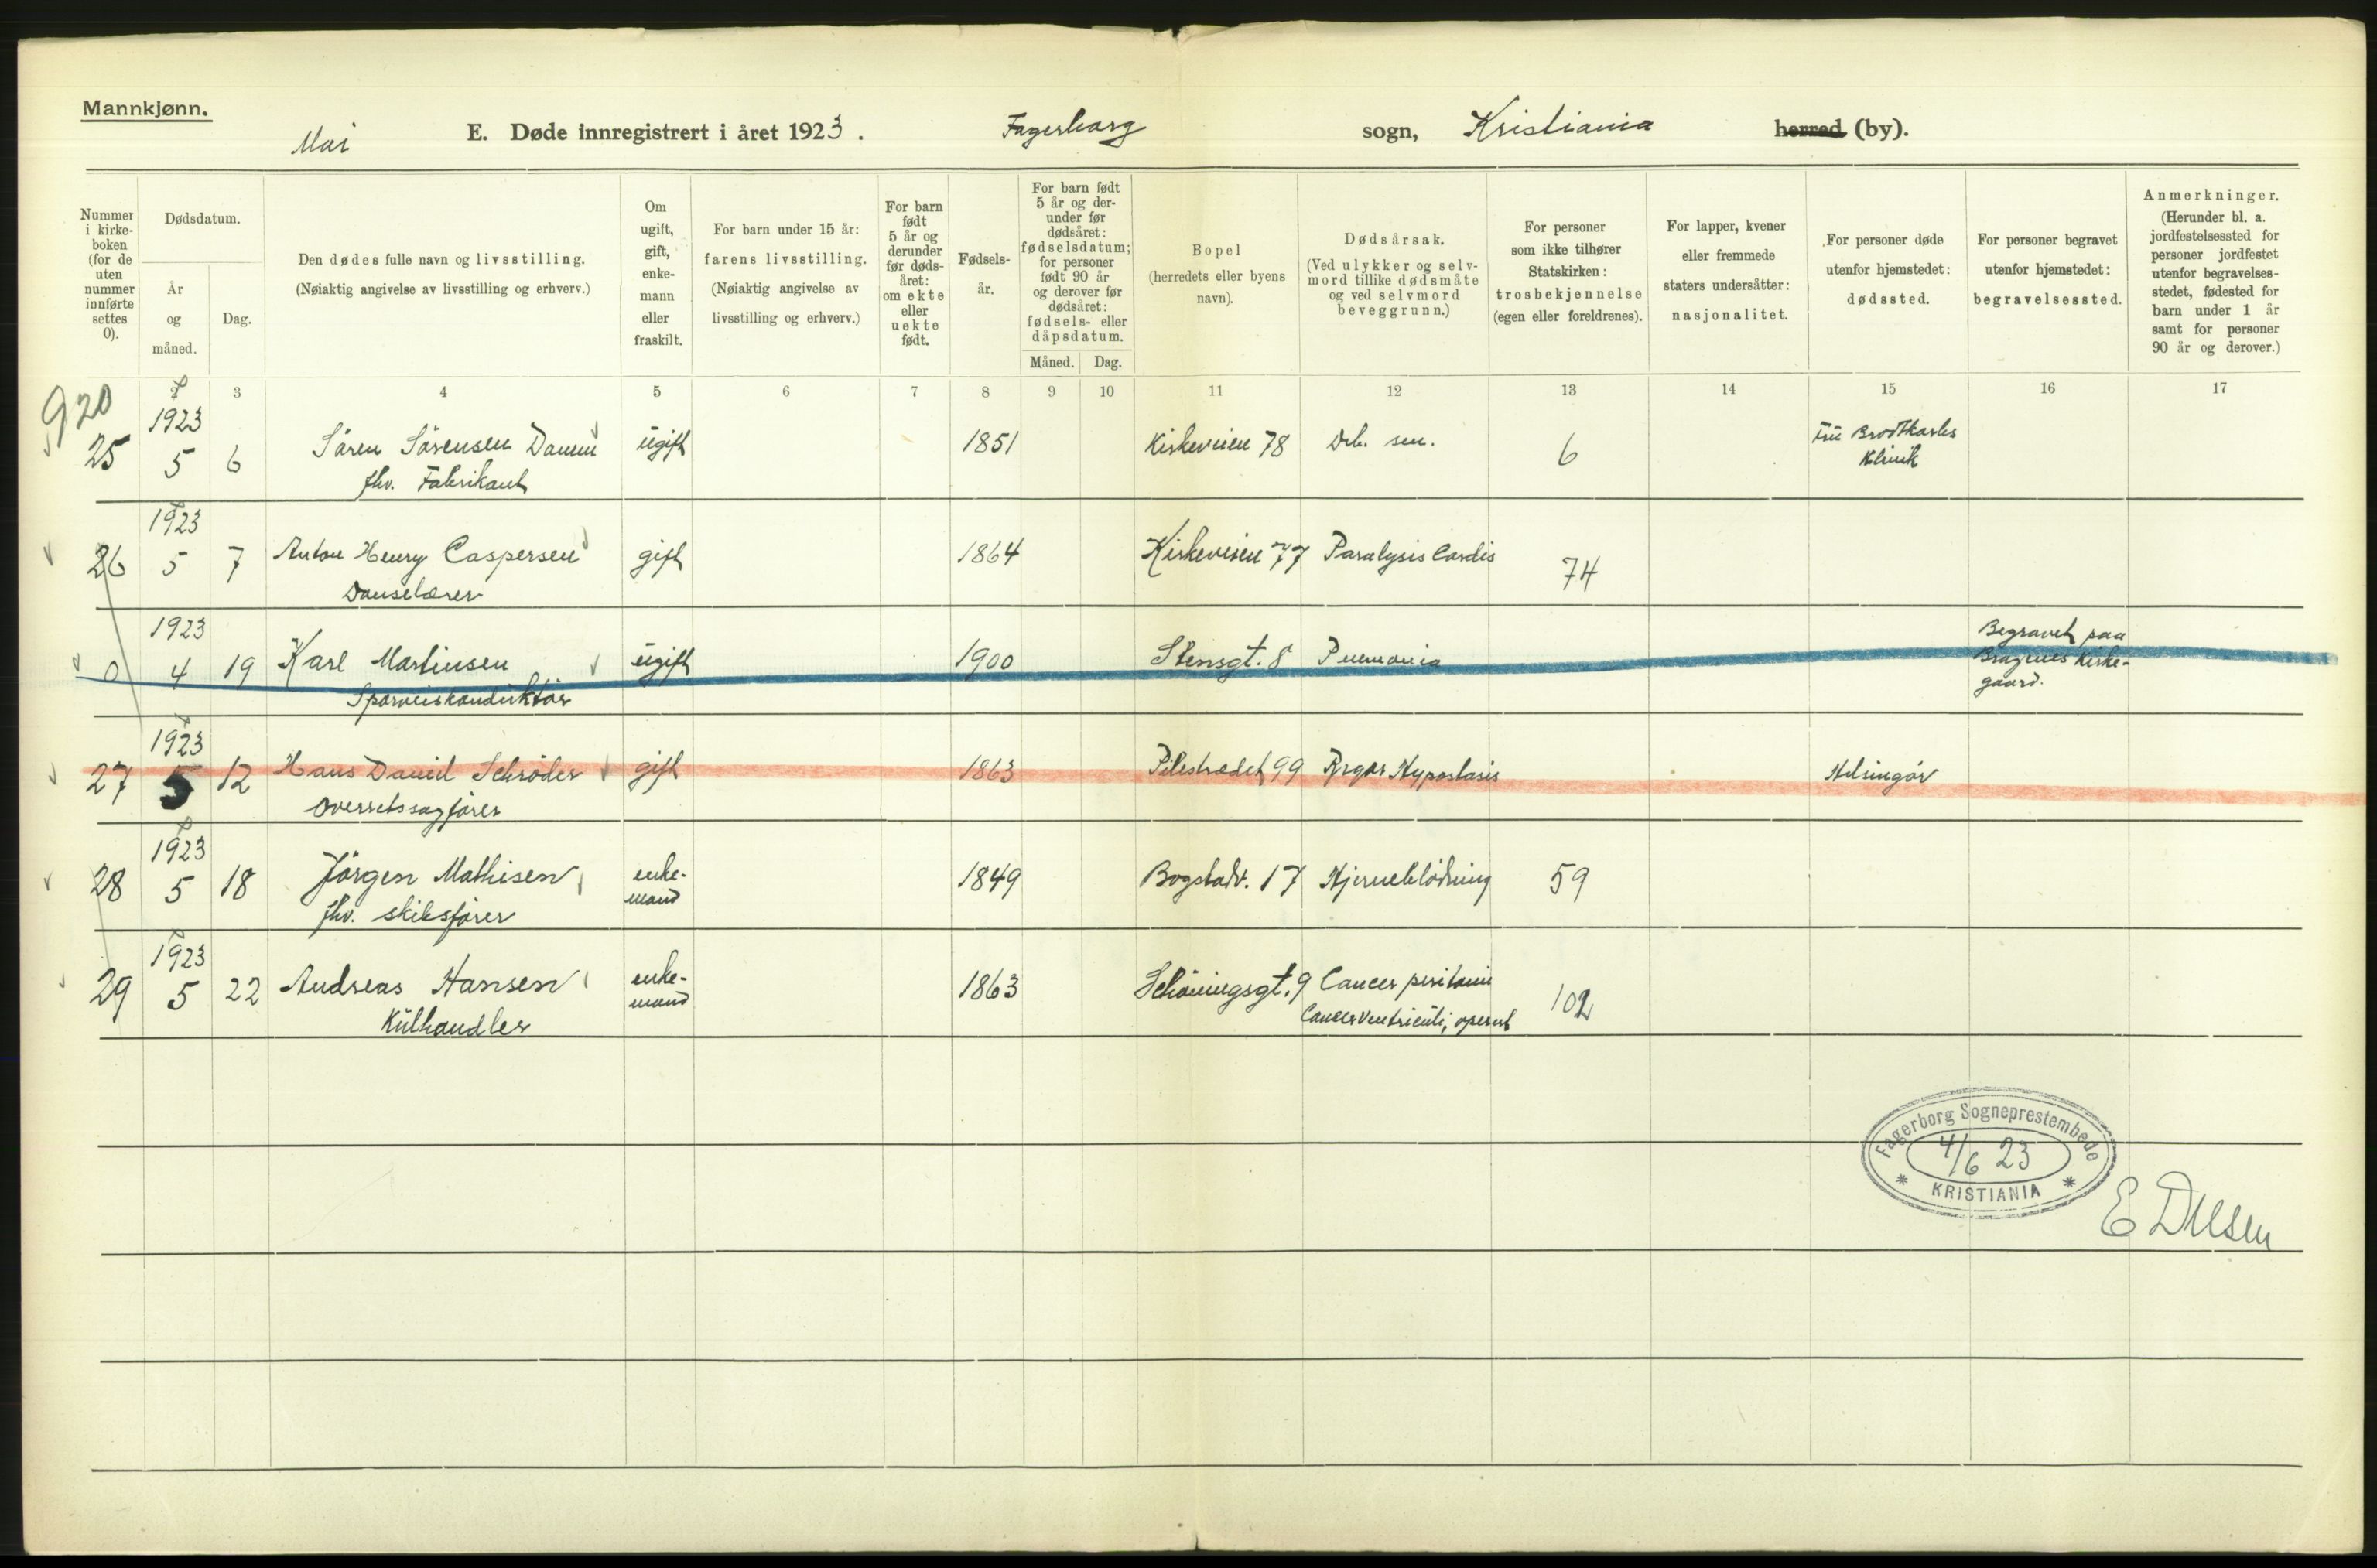 Mannkjønn.
Mai E. Døde innregistrert i året 1923. Fagerborg sogn, Kristiania herred (by).
Nummer i kirke-boken (for de uten nummer innførte settes 0).
Dødsdatum.
År og måned.
Dag.
Den dødes fulle navn og livsstilling.
(Nøiaktig angivelse av livsstilling og erhverv.)
Om ugift, gift, enke-mann eller fraskilt.
For barn under 15 år:
farens livsstilling.
(Nøiaktig angivelse av livsstilling og erhverv.)
For barn født 5 år og derunder før døds-året: om ekte eller uekte født.
Fødsels-år.
For barn født 5 år og der-under før dødsåret: fødselsdatum; for personer født 90 år og derover før dødsåret: fødsels- eller dåpsdatum.
Måned. Dag.
Bopel
(herredets eller byens navn).
Dødsårsak.
(Ved ulykker og selv-mord tillike dødsmåte og ved selvmord beveggrunn.)
For personer som ikke tilhører Statskirken: trosbekjennelse (egen eller foreldrenes).
For lapper, kvener eller fremmede staters undersåtter: nasjonalitet.
For personer døde utenfor hjemstedet: dødssted.
For personer begravet utenfor hjemstedet: begravelsessted.
Anmerkninger.
(Herunder bl. a. jordfestelsessted for personer jordfestet utenfor begravelses-stedet, fødested for barn under 1 år samt for personer 90 år og derover.)
2 3 4 5 6 7 8 9 10 11 12 13 14 15 16 17
920
1923
25 5 6 Sören Sörensen Damm ugift 1851 Kirkeveien 78 Deb. sen. 6 Fru Brodtkorbs
fhv. Fabrikant Klinik
1923
26 5 7 Anton Henry Caspersen gift 1864 Kirkeveien 77 Paralysis Cordis 74
Danselærer
1923 Begravet paa
0 4 19 Karl Martinsen ugift 1900 Stensgt. 8 Pnemonia Bragenes Kirke-
Sporveiskonduktör gaard.
1923
27 5 12 Hans Daniel Schröder gift 1863 Pilestrædet 99 Hypostasis Helsingör
Overretssagförer
1923
28 5 18 Jörgen Mathisen enke- 1849 Bogstadv. 17 Hjerneblödning 59
fhv. skibsförer mand
1923
29 5 22 Andreas Hansen enke- 1863 Schöningsgt. 9 Cancer peritonii 102
Kulhandler mand Cancer ventriculi, operert
Fagerborg Sogneprestembede
4/6 23
* KRISTIANIA *